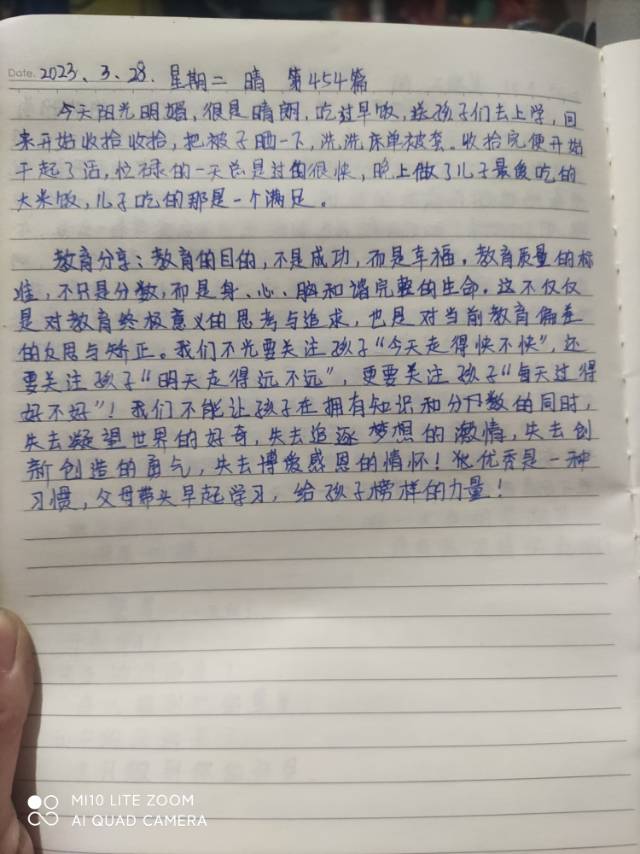 Date. 2023、3、28. 星期二 晴 第454篇
今天阳光明媚,很是晴朗,吃过早饭,送孩子们去上学,回
来开始收拾收拾,把被子晒一下,洗洗床单被套。收拾完便开始
干起了活,忙禄的一天总是过的很快,晚上做了儿子最爱吃的
大米饭,儿子吃的那是一个满足。
教育分享:教育的目的,不是成功,而是幸福。教育质量的标
准,不只是分数,而是身、心、脑和谐完整的生命。这不仅仅
是对教育终极意义的思考与追求,也是对当前教育偏差
的反思与矫正。我们不光要关注孩子“今天走得快不快”,还
要关注孩子“明天走得远不远”,更要关注孩子“每天过得
好不好”!我们不能让孩子在拥有知识和分数的同时,
失去凝望世界的好奇,失去追逐梦想的激情,失去创
新创造的勇气,失去博爱感恩的情怀!优秀是一种
习惯,父母带头早起学习,给孩子榜样的力量!
MI10 LITE ZOOM
AI QUAD CAMERA